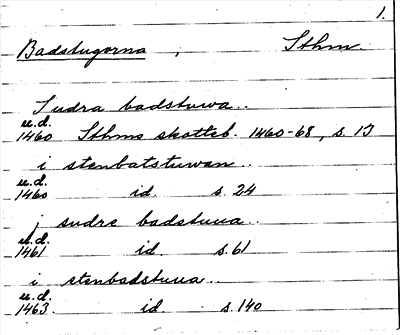 1.
Badstugorna, Sthm.
Sudra badstuwa..
u.d.
1460 Sthms skotteb. 1460-68, s. 13
i stenbatstuwan..
u.d.
1460 id. s. 24
j sudre badstuua..
u.d.
1461 id. s. 61
i stenbadstuua..
u.d.
1463. id. s. 140